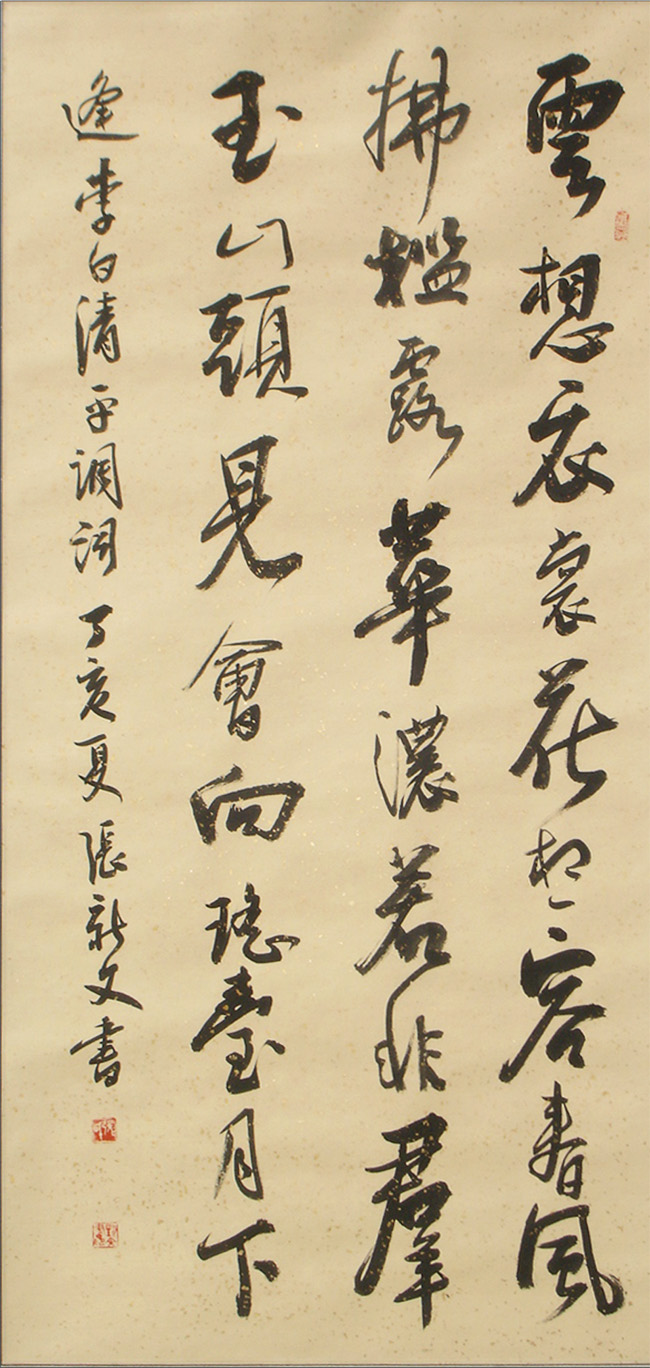 雲想衣裳花想容春風
拂檻露華濃若非群
玉山頭見會向瑤臺月下
逢李白清平調詞丁亥夏張新文書